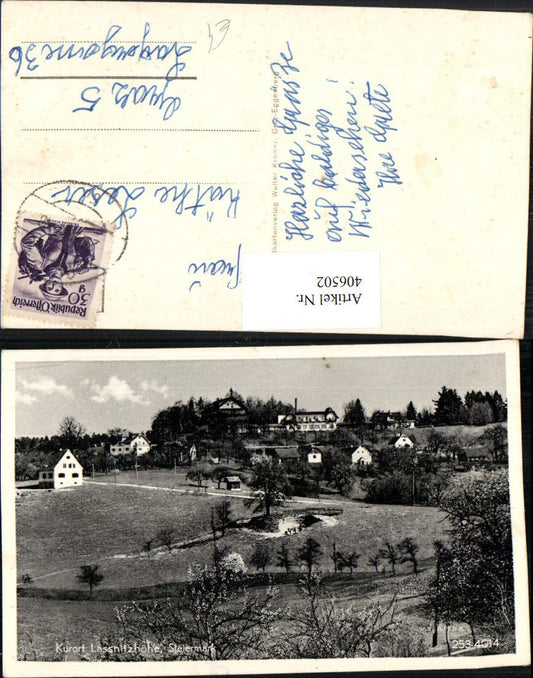 Herzliche Grüße
auf baldiges
Wiedersehen!
Ihre Grete
Postkartenverlag Walter Kramer, Graz-Eggenberg
Frau
Käthe Leser
Graz 5
36
Republik Österreich
30
g
Artikel Nr.
406502
Kurort Lassnitzhöhe, Steiermark
253.4014